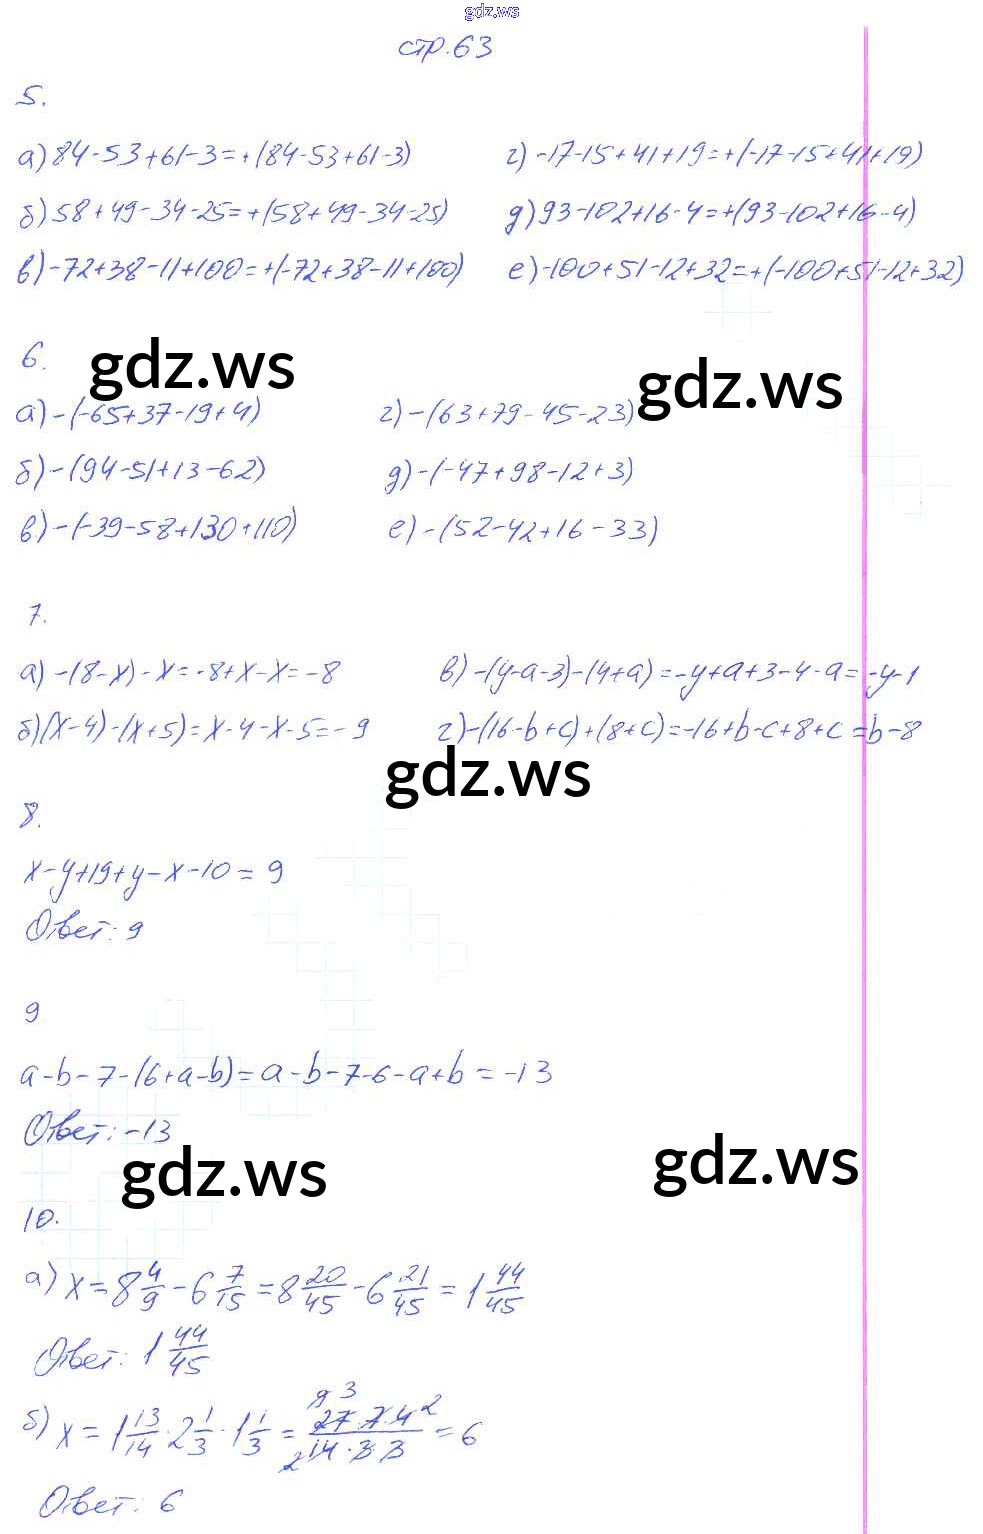 gdz.ws
стр.63
5.
а) 84-53+61-3=+(84-53+61-3)
г) -17-15+41+19=+(-17-15+41+19)
б) 58+49-34-25=+(58+49-34-25)
д) 93-102+16-4=+(93-102+16-4)
в) -72+38-11+100=+(-72+38-11+100)
е) -100+51-12+32=+(-100+51-12+32)
6.
gdz.ws
gdz.ws
а) -(-65+37-19+4)
г) -(63+79-45-23)
б) -(94-51+13-62)
д) -(-47+98-12+3)
в) -(-39-58+130+110)
е) -(52-42+16-33)
7.
а) -(8-x)-x=-8+x-x=-8
в) -(y-a-3)-(4+a)=-y+a+3-4-a=-y-1
б) (x-4)-(x+5)=x-4-x-5=-9
г) -(16-b+c)+(8+c)=-16+b-c+8+c=b-8
gdz.ws
8.
x-y+19+y-x-10=9
Ответ: 9
9
a-b-7-(6+a-b)=a-b-7-6-a+b=-13
Ответ: -13
gdz.ws
gdz.ws
10.
а) x=8 4/9-6 7/15=8 20/45-6 21/45=1 44/45
Ответ: 1 44/45
9 3 2
б) x=1 13/14·2 1/3·1 1/3=27·7·4/14·3·3=6
2
Ответ: 6